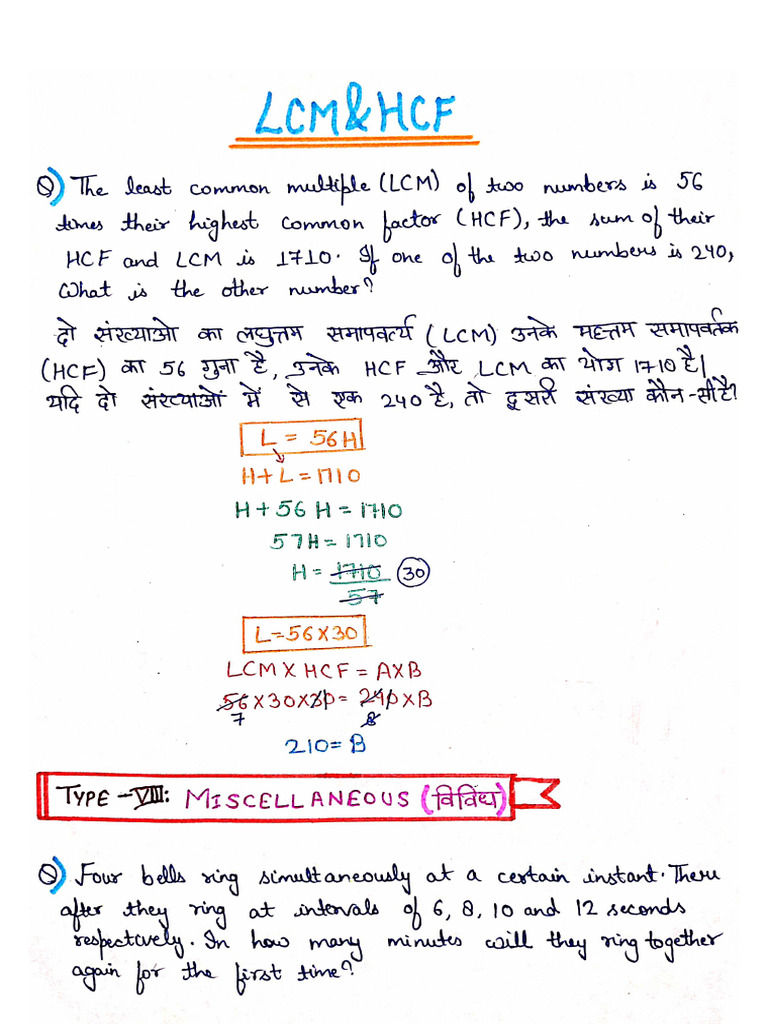 LCM&HCF
Q) The least common multiple (LCM) of two numbers is 56
times their highest common factor (HCF), the sum of their
HCF and LCM is 1710. If one of the two numbers is 240,
What is the other number?
दो संख्याओ का लघुत्तम समापवर्त्य (LCM) उनके महत्तम समापवर्तक
(HCF) का 56 गुना है, उनके HCF और LCM का योग 1710 है|
यदि दो संख्याओं में से एक 240 है, तो दूसरी संख्या कौन-सी है?
L = 56H
H+L=1710
H+56H=1710
57H=1710
H=1710/57 30
L=56×30
LCM×HCF=A×B
56×30×30=240×B
7 8
210=B
TYPE-VIII: MISCELLANEOUS (विविध)
Q) Four bells ring simultaneously at a certain instant. There
after they ring at intervals of 6, 8, 10 and 12 seconds
respectively. In how many minutes will they ring together
again for the first time?